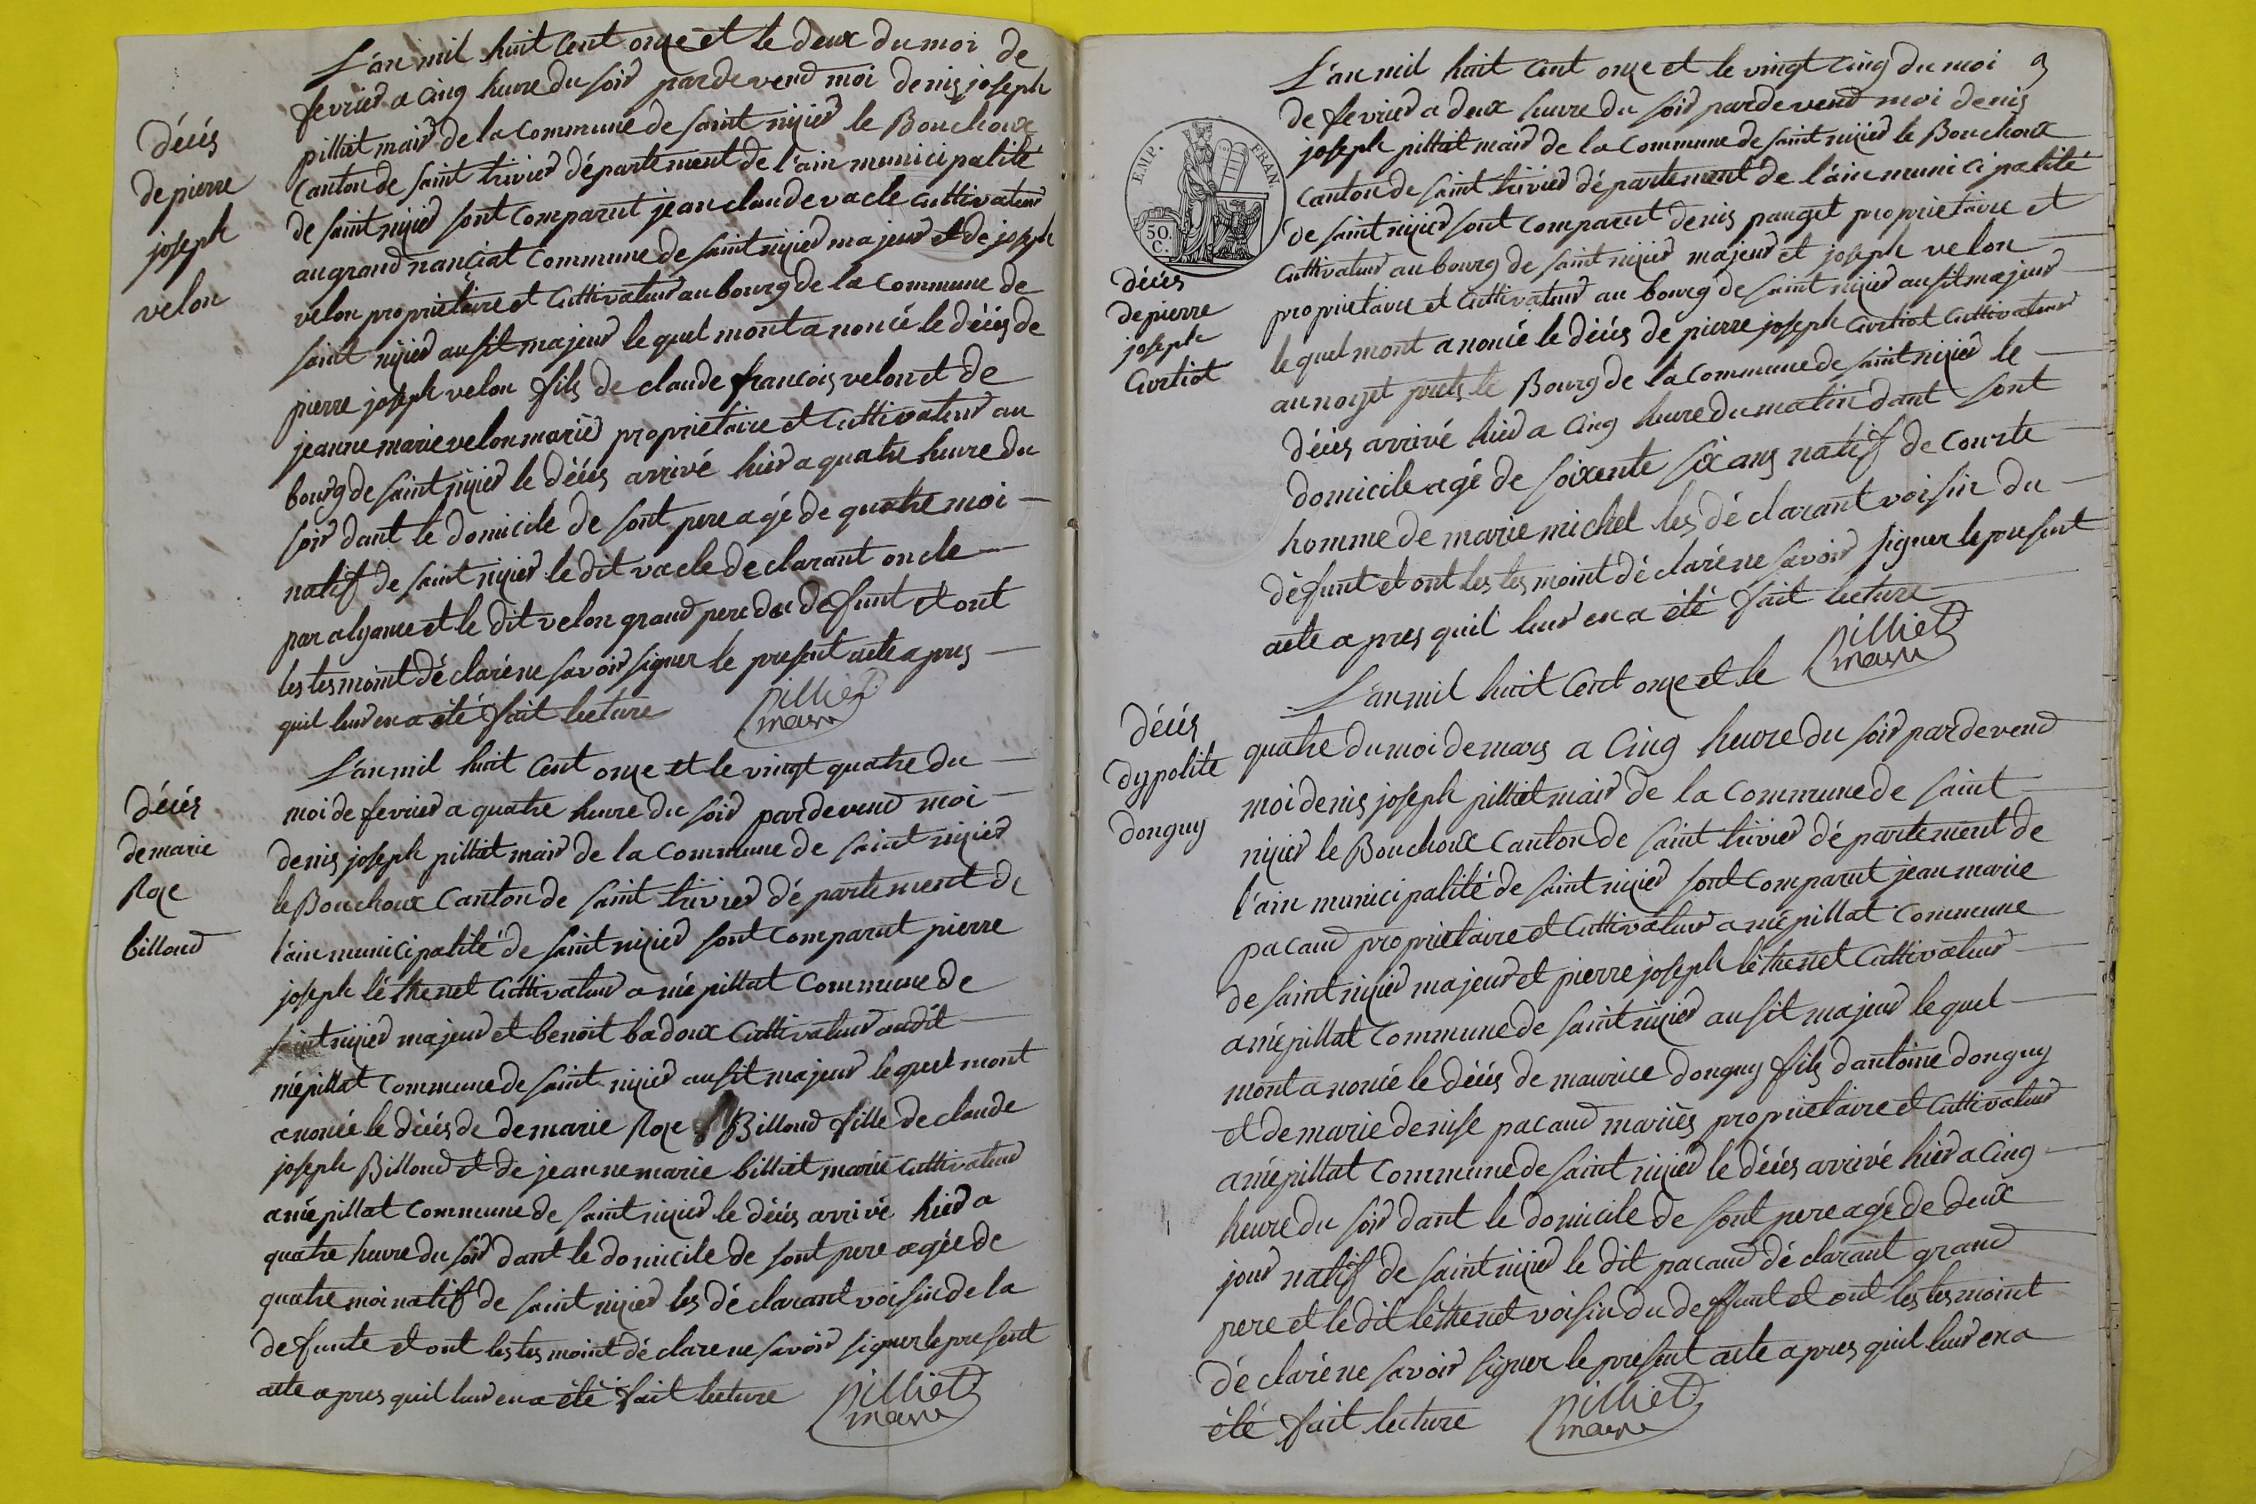 L'an mil huit Cent onze et le deux du moi de
fevrier a Cinq heure du soir pardevend moi denis joseph
pilliet mair de la Commune de saint nizier le Bouchoux
Canton de saint trivier département de l'ain municipalité
de saint nizier sont Comparut jean claude vacle Cultivateur
au grand nanciat Commune de saint nizier majeur et de joseph
velon propriétaire et Cultivateur au bourg de la Commune de
saint nizier ausit majeur le quel mont anoncé le décés de
pierre joseph velon fils de claude francois velon et de
jeanne marie velon marié propriétaire et Cultivateur au
bourg de saint nizier le décés arrivé hier a quatre heure du
soir dant le domicile de sont pere agé de quatre moi
natif de saint nizier le dit vacle declarant oncle
par alyance et le dit velon grand pere du defunt et ont
les tesmoint déclaré ne savoir signer le présent acte apres
quil leur en a été fait lecture
pilliet
maire
décés
de pierre
joseph
velon
L'an mil huit Cent onze et le vingt quatre du
moi de fevrier a quatre heure du soir pardevend moi
denis joseph pilliet mair de la Commune de saint nizier
le Bouchoux Canton de saint trivier département de
l'ain municipalité de saint nizier sont Comparut pierre
joseph léthenet Cultivateur a niépillat Commune de
saint nizier majeur et benoit badoux Cultivateur audit
niépillat Commune de saint nizier ausit majeur le quel mont
anoncé le décés de de marie Roze Billoud fille de claude
joseph Billoud et de jeanne marie billiet marié Cultivateur
a niépillat Commune de saint nizier le décés arrivé hier a
quatre heure du soir dant le domicile de sont pere agée de
quatre moi natif de saint nizier les déclarant voisin de la
defunte et ont les tesmoint déclaré ne savoir signer le présent
acte apres quil leur en a été fait lecture
pilliet
maire
décés
de marie
Roze
billoud
3
L'an mil huit Cent onze et le vingt Cinq du moi
de fevrier a deux heure du soir pardevend moi denis
joseph pilliat mair de la Commune de saint nizier le Bouchoux
Canton de saint trivier département de l'ain municipalité
de saint nizier sont Comparut denis pauget propriétaire et
Cultivateur au bourg de saint nizier majeur et joseph velon
propriétaire et Cultivateur au bourg de saint nizier ausit majeur
le quel mont anoncé le décés de pierre joseph Curtiot Cultivateur
au noyet prets le Bourg de la Commune de saint nizier le
décés arrivé hier a Cinq heure du matin dant sont
domicile agé de soixente six ans natif de Courte
homme de marie michel les déclarant voisin du
défunt et ont les tesmoint déclaré ne savoir signer le present
acte apres quil leur en a été fait lecture
pilliet
maire
EMP. FRAN.
50.
C.
décés
de pierre
joseph
Curtiot
L'an mil huit Cent onze et le
quatre du moi de mars a Cinq heure du soir pardevend
moi denis joseph pilliet mair de la Commune de saint
nizier le Bouchoux Canton de saint trivier département de
l'ain municipalité de saint nizier sont Comparut jean marie
pacaud propriétaire et Cultivateur a niépillat Commune
de saint nizier majeur et pierre joseph léthenet Cultivateur
a niépillat Commune de saint nizier ausit majeur le quel
mont anoncé le décés de maurice donguy fils dantoine donguy
et de marie denise pacaud mariés propriétaire et Cultivateur
a niépillat Commune de saint nizier le décés arrivé hier a Cinq
heure du soir dant le domicile de sont pere agé de deux
jour natif de saint nizier le dit pacaud déclarant grand
pere et le dit léthenet voisin du deffunt et ont les tesmoint
déclaré ne savoir signer le présent acte apres quil leur en a
été fait lecture
pilliet
maire
décés
dypolite
donguy